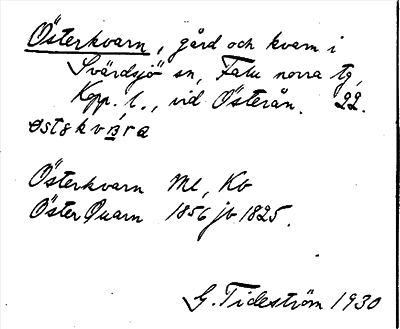 Österkvarn, gård och kvarn i
Svärdsjö sn, Falu norra tg,
Kopp. l., vid Österån. 22.
Österkvarn Ml, Kb
Öster Quarn 1856 jb 1825.
G. Tideström 1930